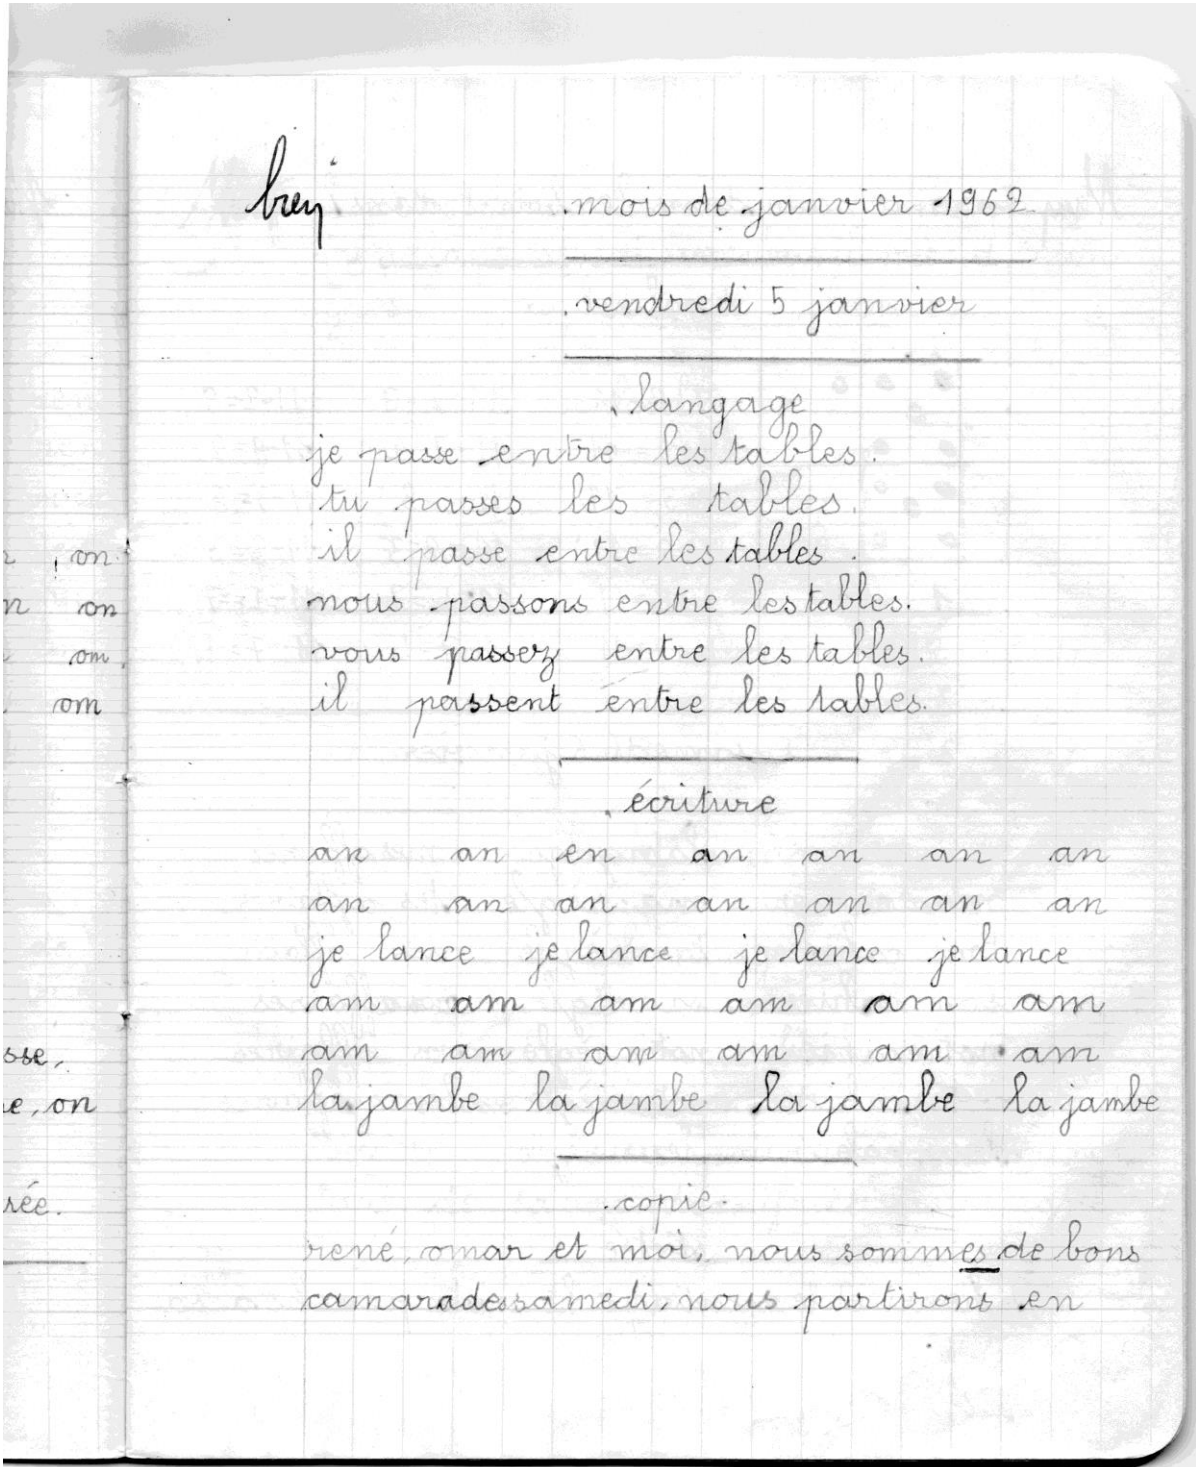 bien
mois de janvier 1962
vendredi 5 janvier
langage
je passe entre les tables.
tu passes les tables.
il passe entre les tables.
nous passons entre les tables.
vous passez entre les tables.
il passent entre les tables.
écriture
an an en an an an an
an an an an an an an
je lance je lance je lance je lance
am am am am am am
am am am am am am
la jambe la jambe la jambe la jambe
copie.
rené, omar et moi, nous sommes de bons
camarades samedi, nous partirons en
, on
on
om
om
sse,
e, on
rée.